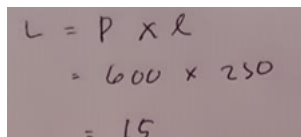 L = P x l
= 600 x 250
= 15